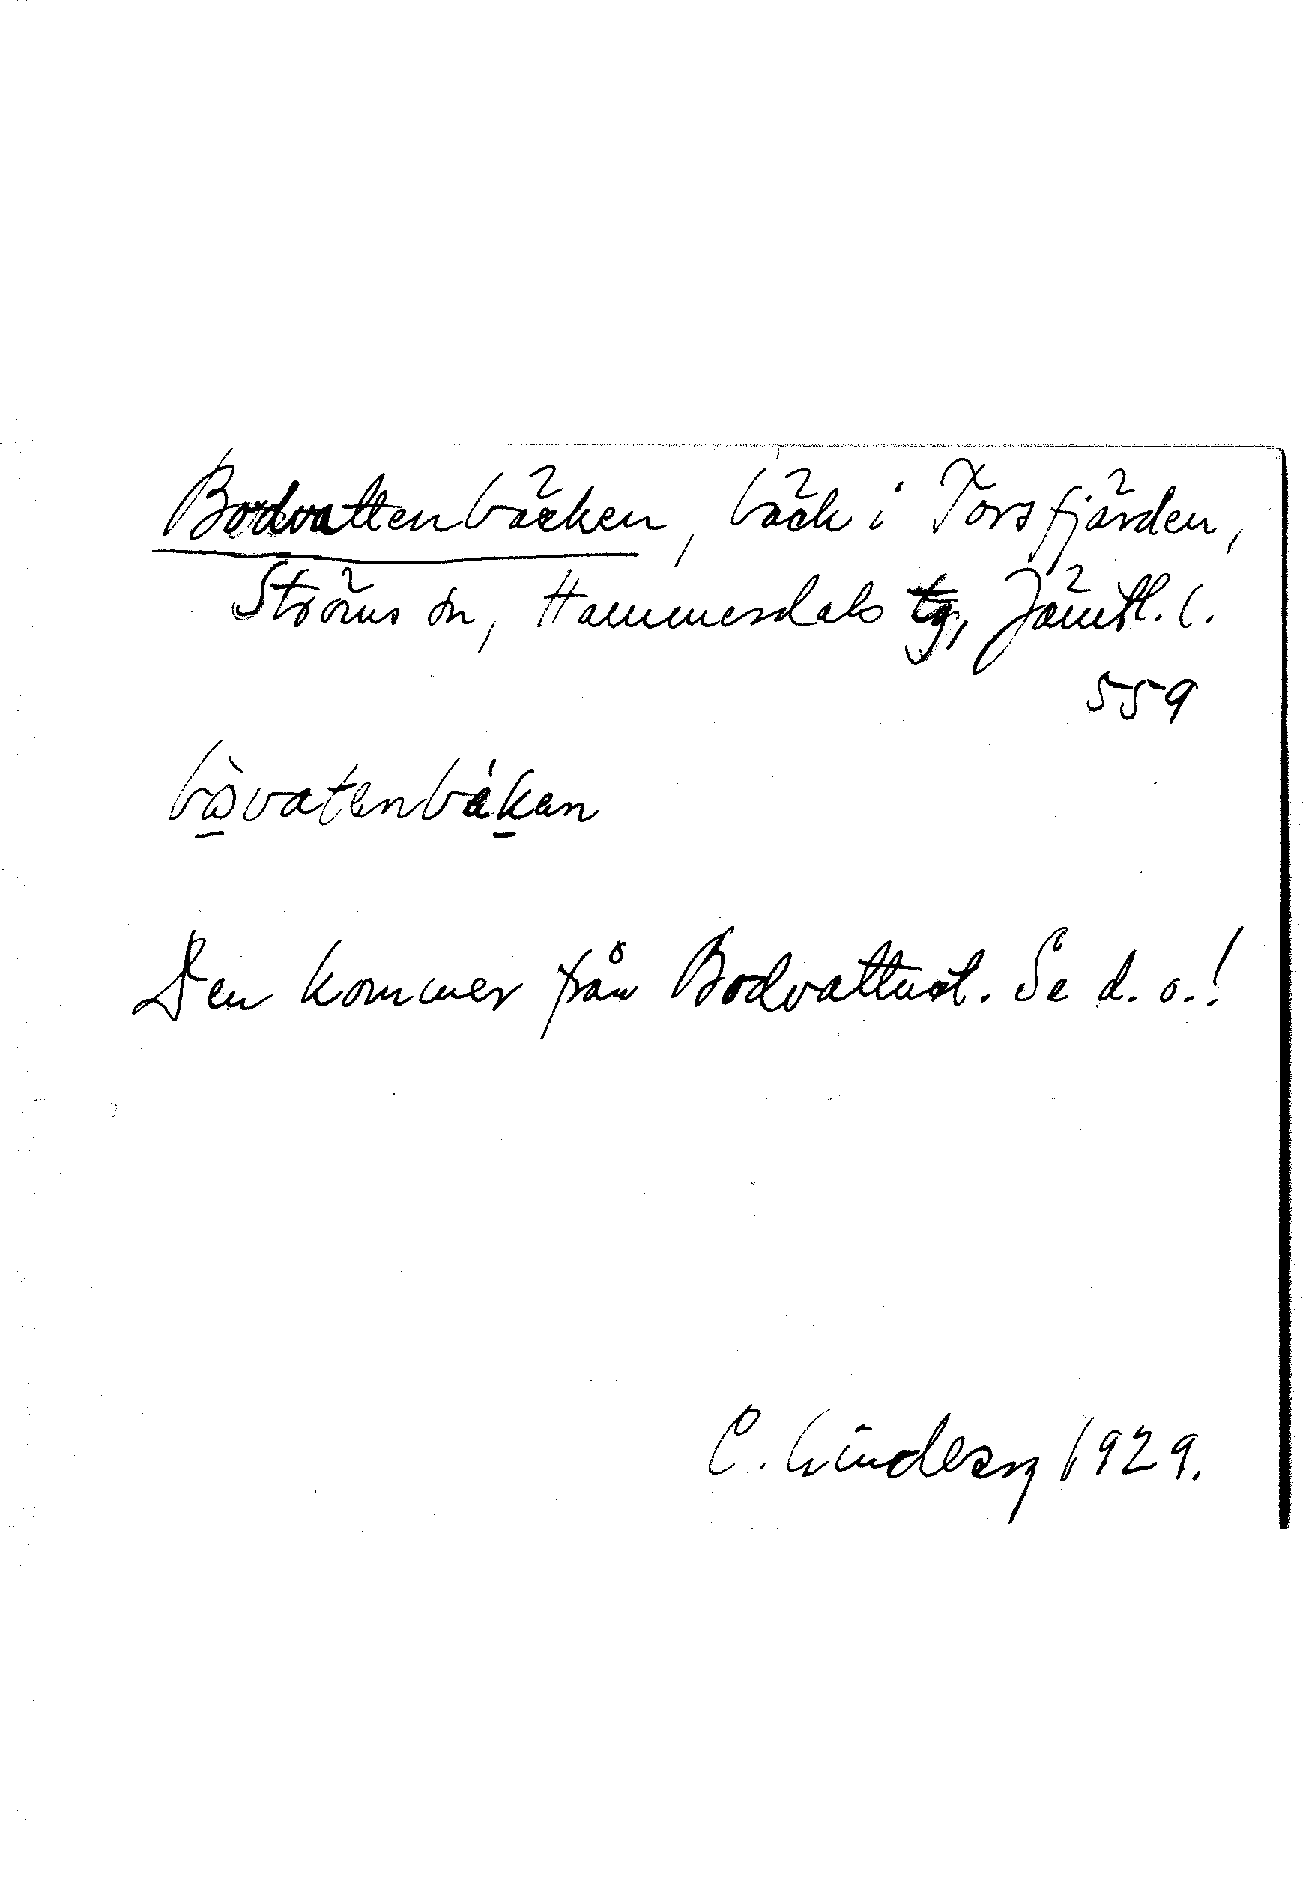 Bodvattenbäcken, bäck i Torsfjärden,
Ströms sn, Hammerdals tg, Jämtl. l.
559
Den kommer från Bodvattnet. Se d. o.!
C. Lindberg 1929.